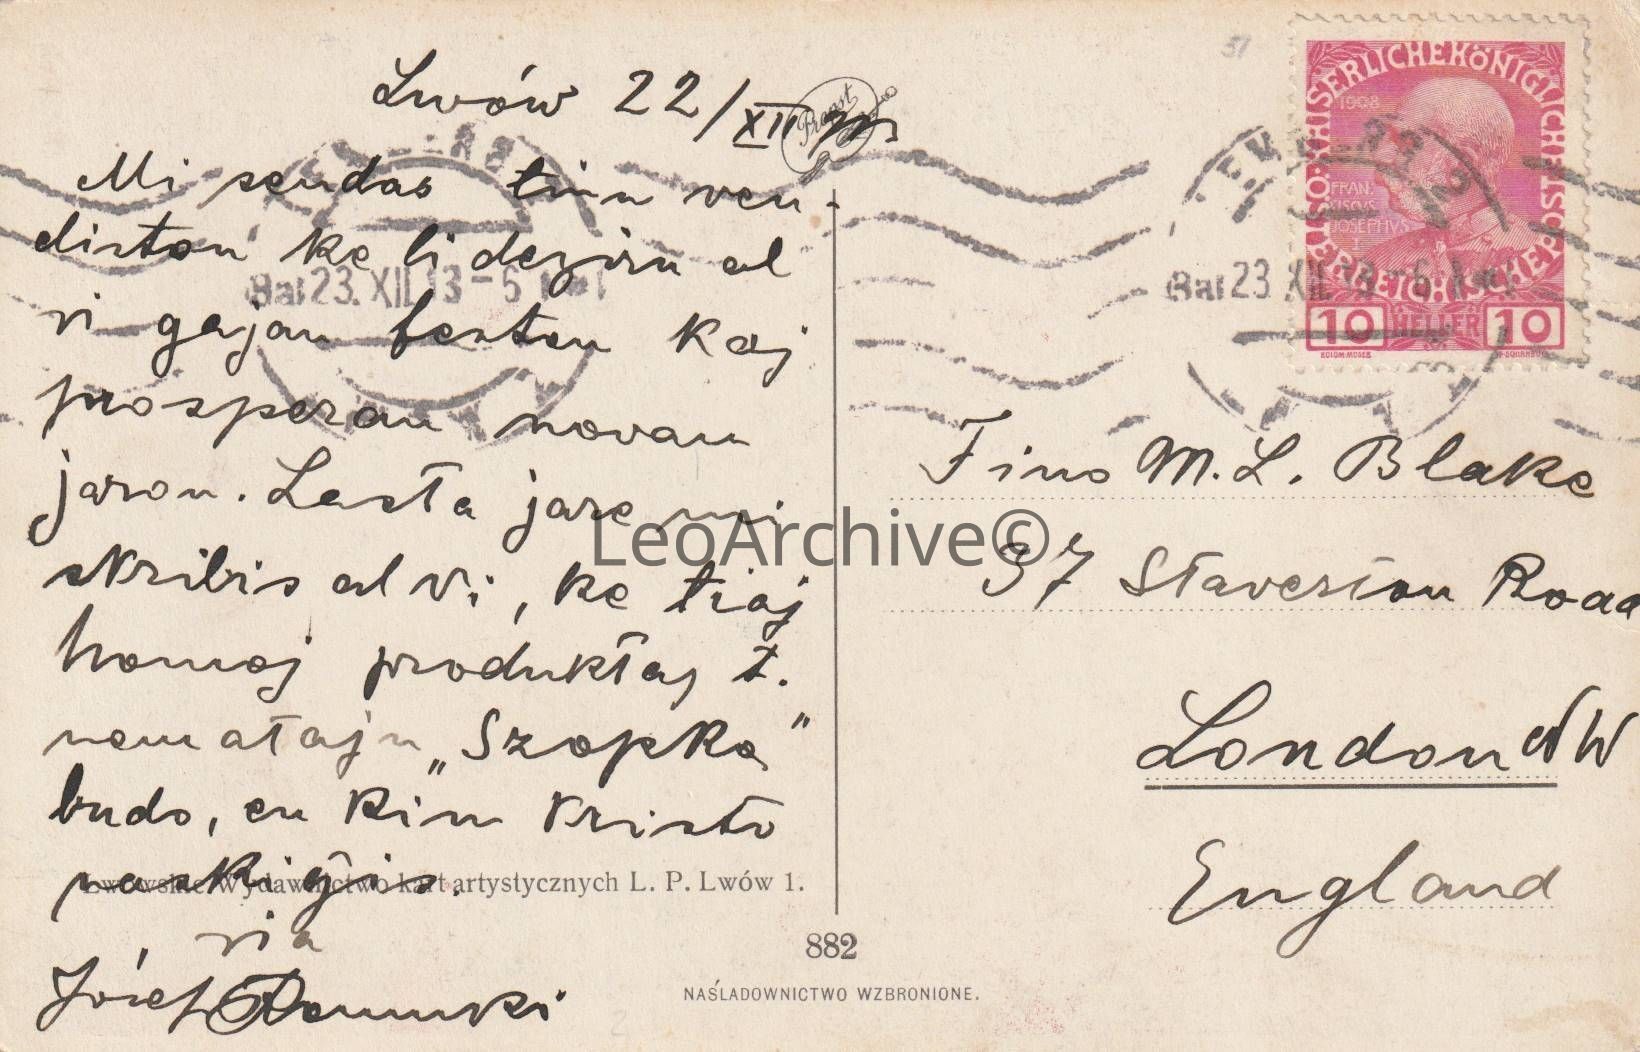 Lwów 22/XII
Mi sendas tiun ven-
diston ke li deziru al
vi gajan feston kaj
prosperan novan
jaron. Lasta jare mi
skribis al vi, ke tiaj
homoj produktas t.
nomatajn „Szopka”
budo, en kiu Kristo
naskiĝis.
via
Józef
Lwowskie Wydawnictwo kart artystycznych L. P. Lwów 1.
882
NAŚLADOWNICTWO WZBRONIONE.
KAISERLICHEKÖNIGLICHE ÖSTERREICHISCHE
1908
FRAN
CISCVS
JOSEPHVS
I
10 HELLER 10
KOLOM. MOSER
23.XII.13-6
23 XII 13-6
Fino M. L. Blake
37 Staverton Road
London NW
England
LeoArchive©